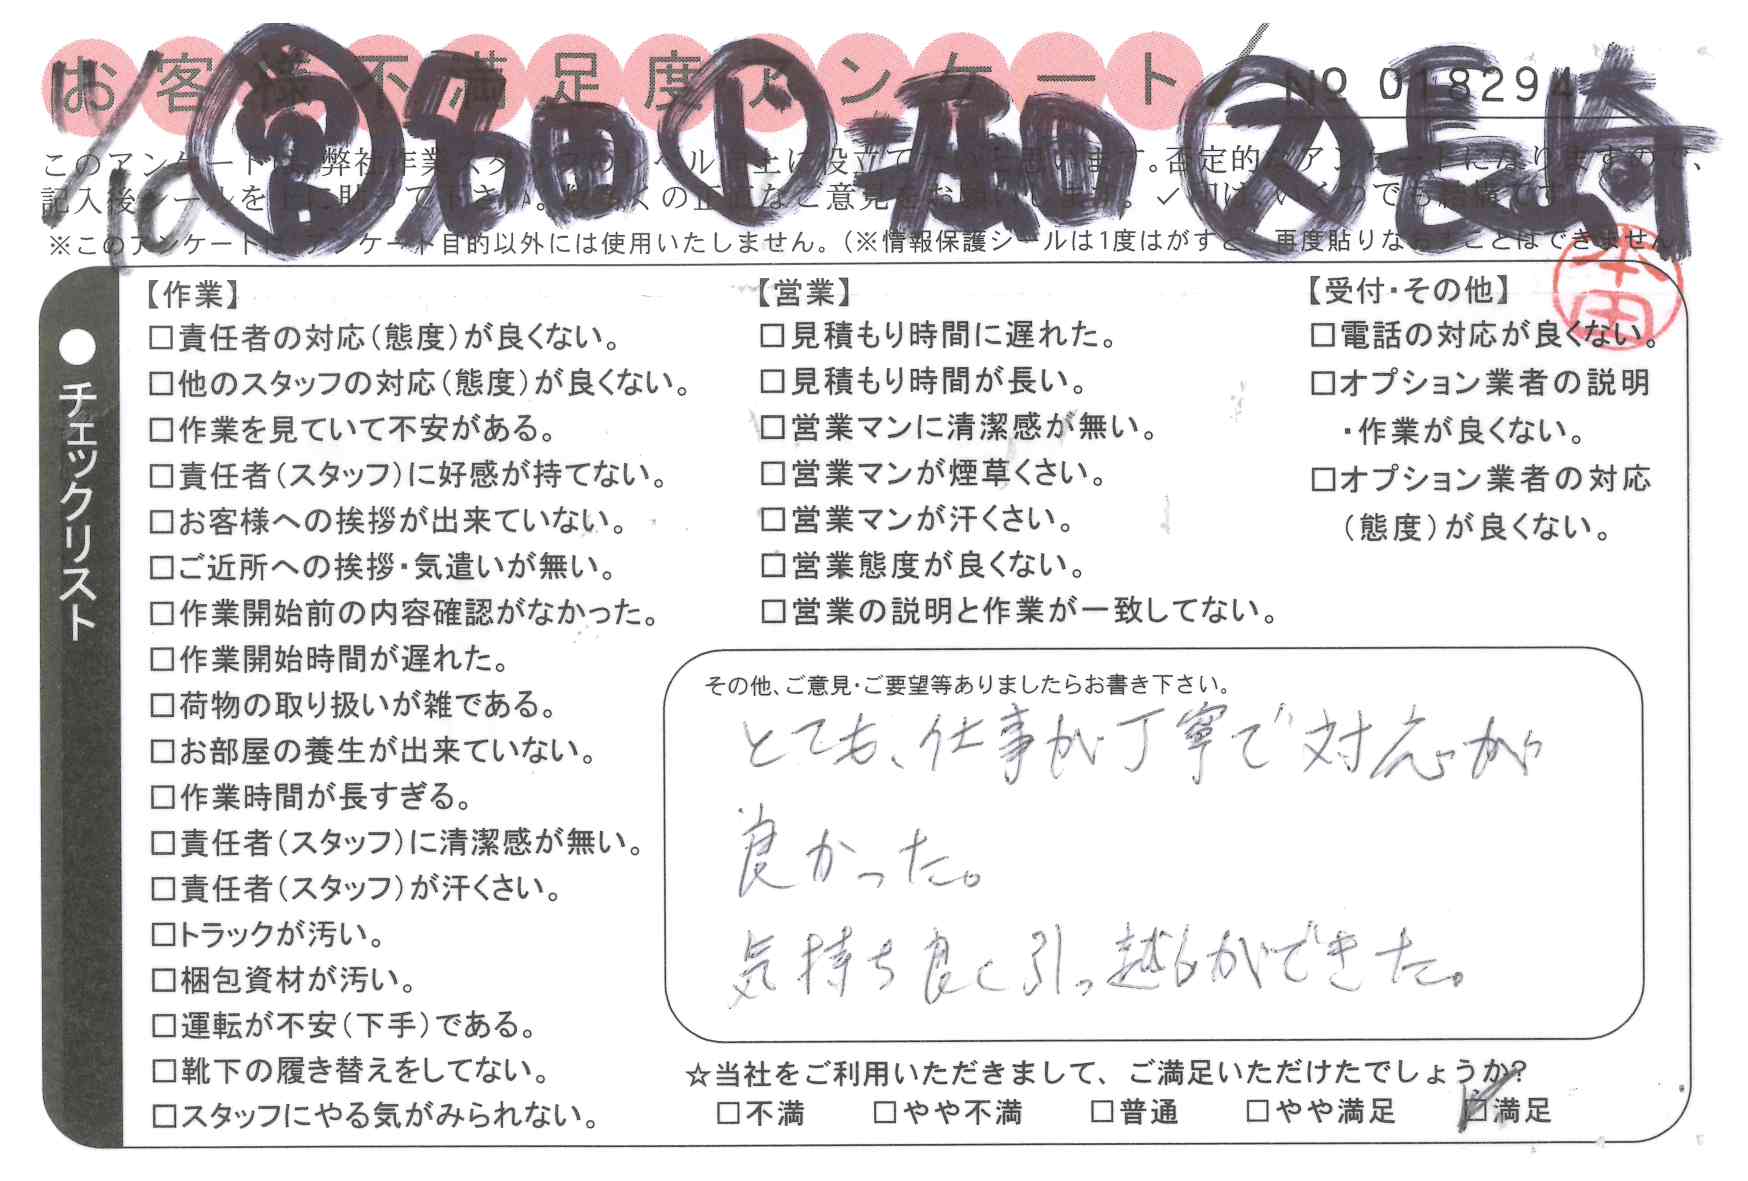 お客様不満足度アンケート
No 018294
11/10 営 多田 ト 堀田 ス 長崎
このアンケートは、弊社作業スタッフのレベル向上に役立て
す。否定的なアンケートになりますので、
記入後シールを上に貼って下さい。数多くの正直なご意見をお願いします。✓印は、いくつでも結構です。
※このアンケートは、アンケート目的以外には使用いたしません。(※情報保護シールは1度はがすと、再度貼りなおすことはできません。
本田
●チェックリスト
【作業】
□責任者の対応(態度)が良くない。
□他のスタッフの対応(態度)が良くない。
□作業を見ていて不安がある。
□責任者(スタッフ)に好感が持てない。
□お客様への挨拶が出来ていない。
□ご近所への挨拶・気遣いが無い。
□作業開始前の内容確認がなかった。
□作業開始時間が遅れた。
□荷物の取り扱いが雑である。
□お部屋の養生が出来ていない。
□作業時間が長すぎる。
□責任者(スタッフ)に清潔感が無い。
□責任者(スタッフ)が汗くさい。
□トラックが汚い。
□梱包資材が汚い。
□運転が不安(下手)である。
□靴下の履き替えをしてない。
□スタッフにやる気がみられない。
【営業】
□見積もり時間に遅れた。
□見積もり時間が長い。
□営業マンに清潔感が無い。
□営業マンが煙草くさい。
□営業マンが汗くさい。
□営業態度が良くない。
□営業の説明と作業が一致してない。
【受付・その他】
□電話の対応が良くない。
□オプション業者の説明
・作業が良くない。
□オプション業者の対応
(態度)が良くない。
その他、ご意見・ご要望等ありましたらお書き下さい。
とても、仕事が丁寧で対応が
良かった。
気持ち良く引っ越しができた。
☆当社をご利用いただきまして、ご満足いただけたでしょうか?
□不満 □やや不満 □普通 □やや満足 ☑満足